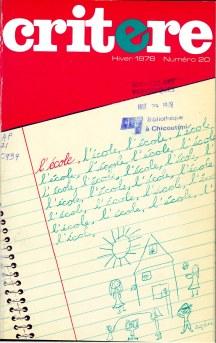 critere
Hiver 1978 Numéro 20
Bibliothèque
à Chicoutimi
AP
21
C934
l'école, l'école, l'école, l'école,
l'école, l'école, l'école, l'école,
l'école, l'école, l'école, l'école,
l'école, l'école, l'école, l'école,
l'école, l'école, l'école, l'école,
l'école,